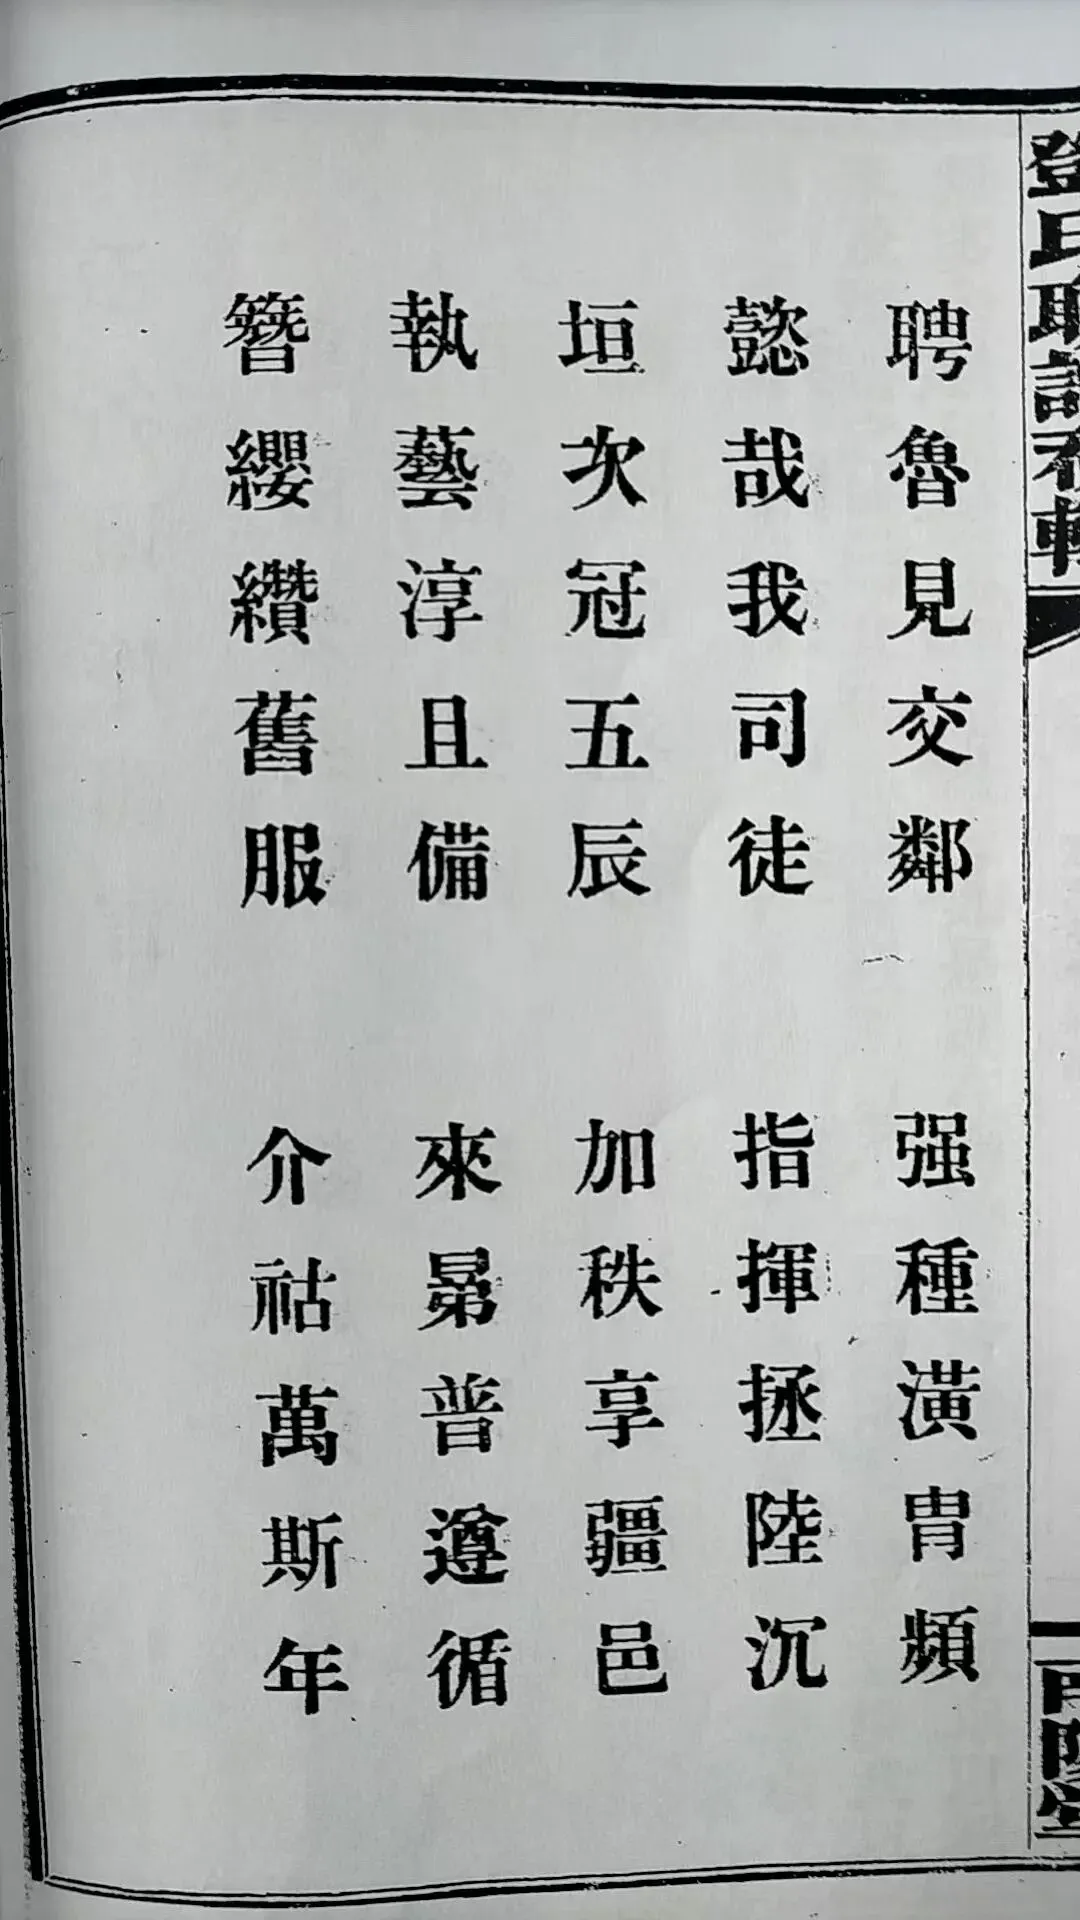 鄧氏聯譜
聘魯見交鄰 强種潢胄頻
懿哉我司徒 指揮拯陸沉
垣次冠五辰 加秩享疆邑
執藝淳且備 來㬎普遵循
簪纓纘舊服 介祜萬斯年
南陽堂